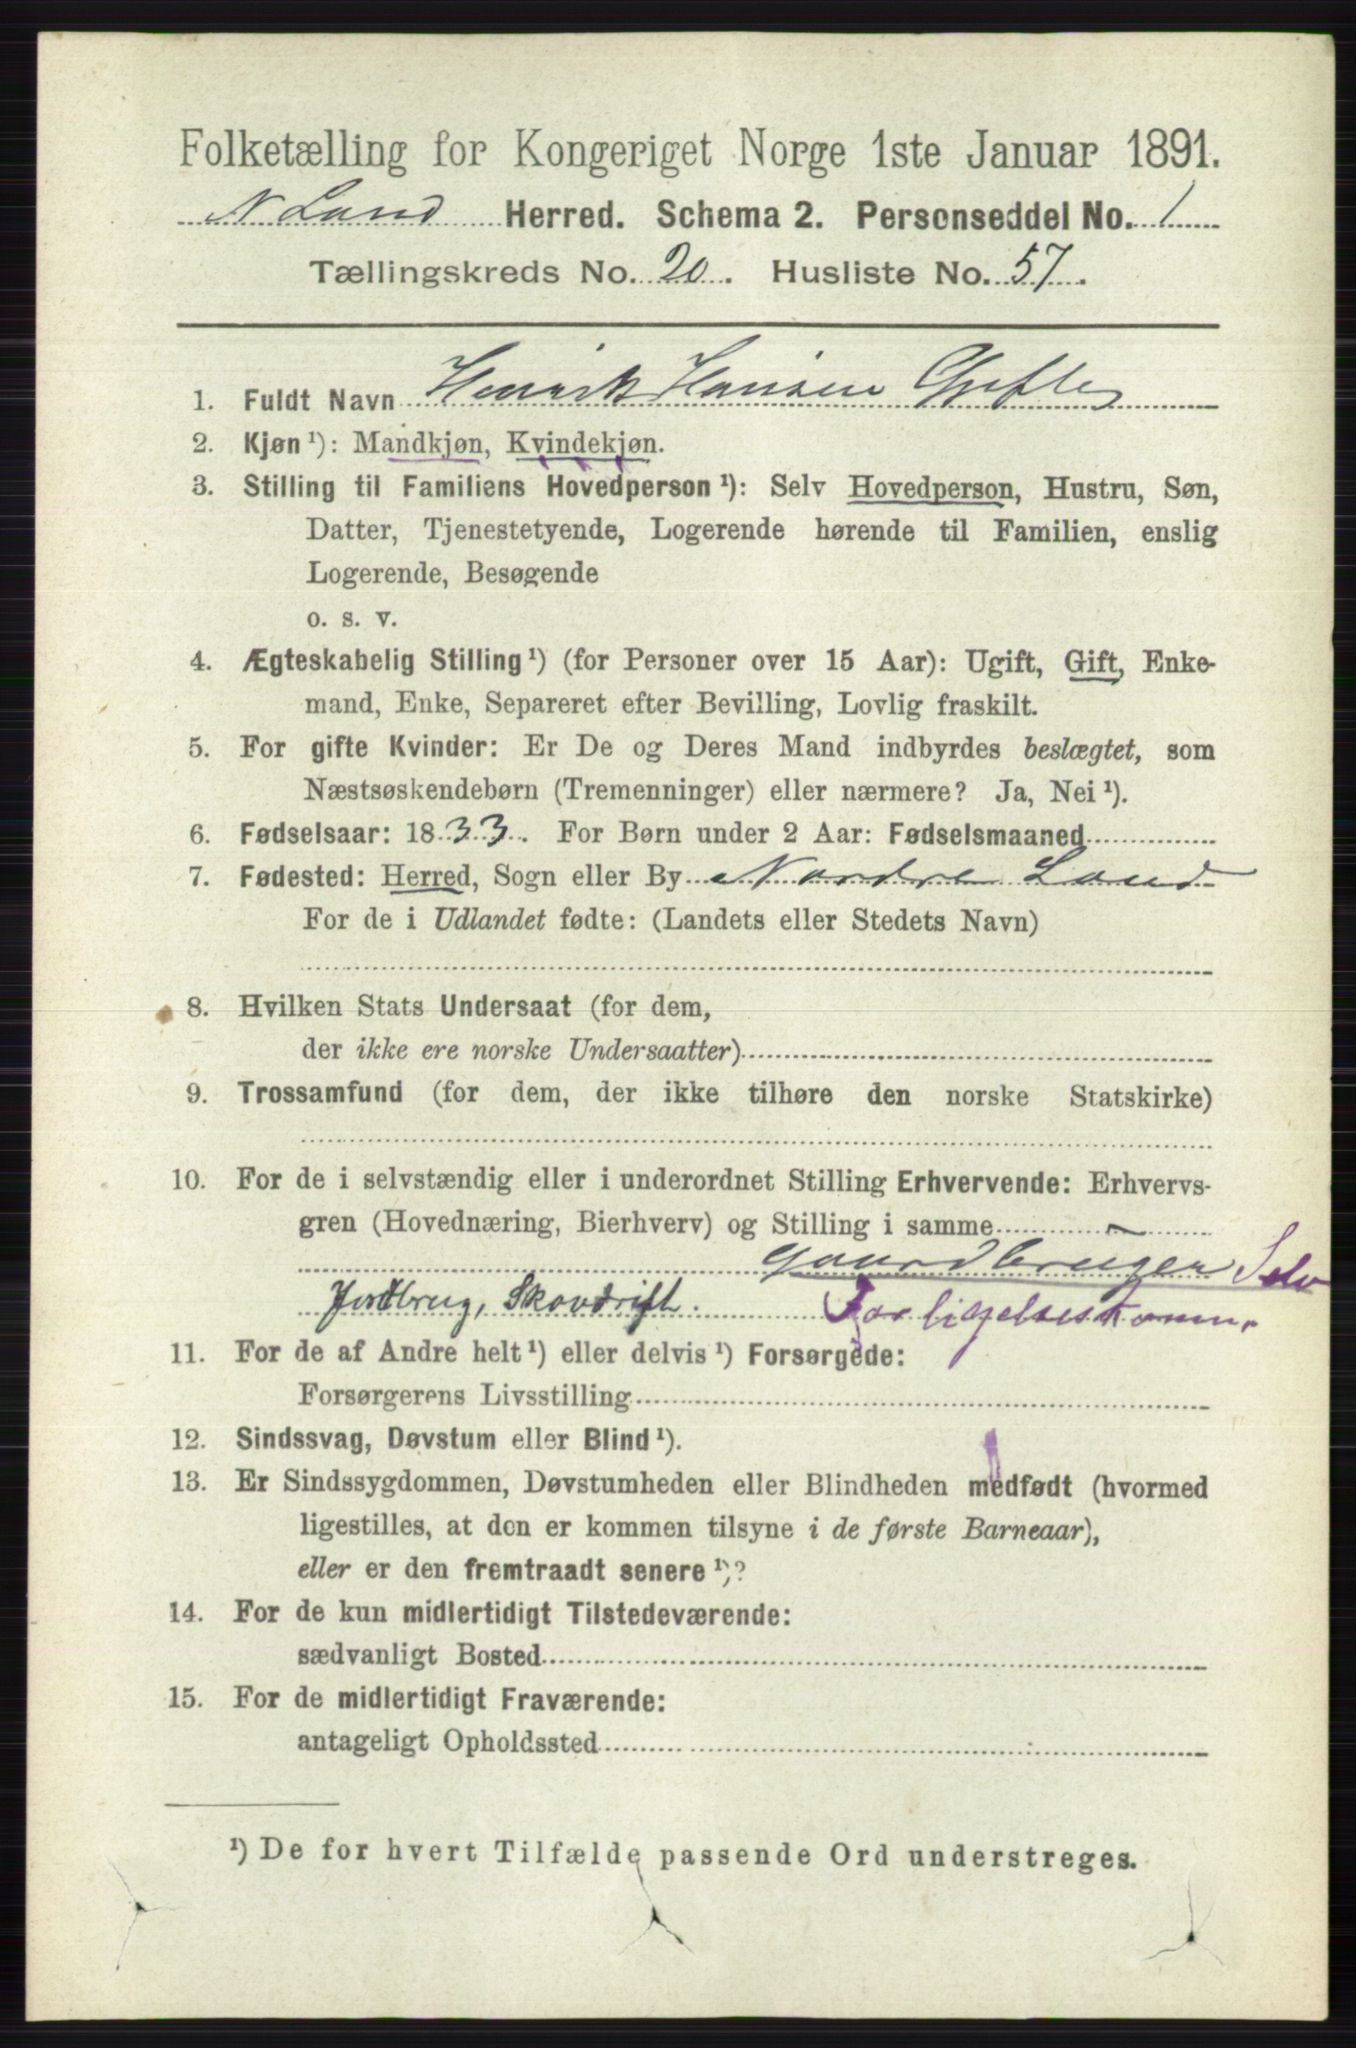 Folketælling for Kongeriget Norge 1ste Januar 1891.
N Land Herred. Schema 2. Personseddel No. 1
Tællingskreds No. 20. Husliste No. 57.
1. Fuldt Navn Henrik Hansen
2. Kjøn¹): Mandkjøn, Kvindekjøn.
3. Stilling til Familiens Hovedperson¹): Selv Hovedperson, Hustru, Søn,
Datter, Tjenestetyende, Logerende hørende til Familien, enslig
Logerende, Besøgende
o. s. v.
4. Ægteskabelig Stilling¹) (for Personer over 15 Aar): Ugift, Gift, Enke-
mand, Enke, Separeret efter Bevilling, Lovlig fraskilt.
5. For gifte Kvinder: Er De og Deres Mand indbyrdes beslægtet, som
Næstsøskendebørn (Tremenninger) eller nærmere? Ja, Nei¹).
6. Fødselsaar: 1833. For Børn under 2 Aar: Fødselsmaaned
7. Fødested: Herred, Sogn eller By Nordre Land
For de i Udlandet fødte: (Landets eller Stedets Navn)
8. Hvilken Stats Undersaat (for dem,
der ikke ere norske Undersaatter)
9. Trossamfund (for dem, der ikke tilhøre den norske Statskirke)
10. For de i selvstændig eller i underordnet Stilling Erhvervende: Erhvervs-
gren (Hovednæring, Bierhverv) og Stilling i samme
Gaardbruger Selv
Jordbrug, Skovdrift. Forligelseskomm.
11. For de af Andre helt¹) eller delvis¹) Forsørgede:
Forsørgerens Livsstilling
12. Sindssvag, Døvstum eller Blind¹).
13. Er Sindssygdommen, Døvstumheden eller Blindheden medfødt (hvormed
ligestilles, at den er kommen tilsyne i de første Barneaar),
eller er den fremtraadt senere¹)?
14. For de kun midlertidigt Tilstedeværende:
sædvanligt Bosted
15. For de midlertidigt Fraværende:
antageligt Opholdssted
¹) De for hvert Tilfælde passende Ord understreges.